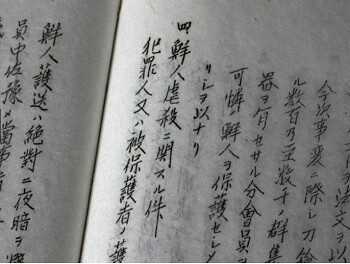 ヲ法文ヲ以
今次事変ニ際シ刀鎗
ル数百乃至数千ノ群集
器ヲ有セサル分會員ヲ
可憐ノ鮮人ヲ保護セシメ
リシヲ以ナリ
四、鮮人虐殺ニ関スル件
犯罪人又ハ被保護者ノ護
鮮人護送ハ絶對ニ夜暗ヲ
員中佐豫メ當事者